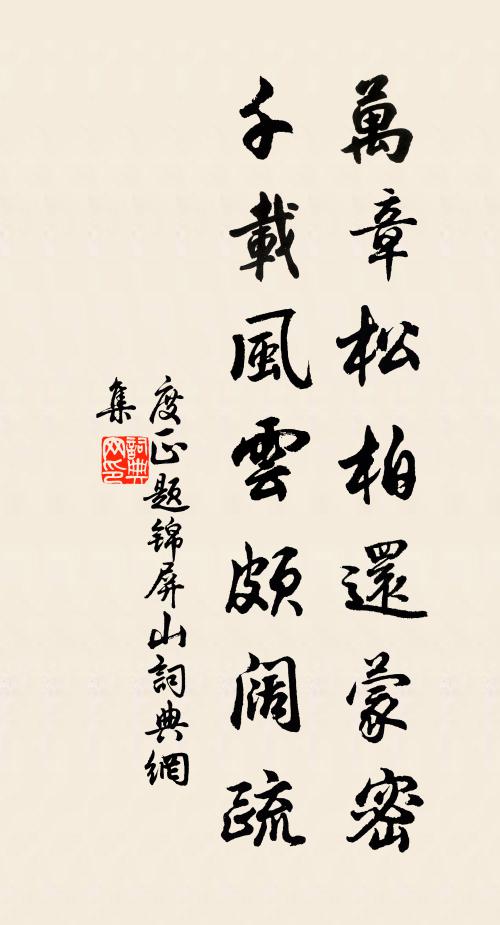 萬章松柏還蒙密
千載風雲頗闊疏
度正題錦屏山詞典網
集
詞典网印